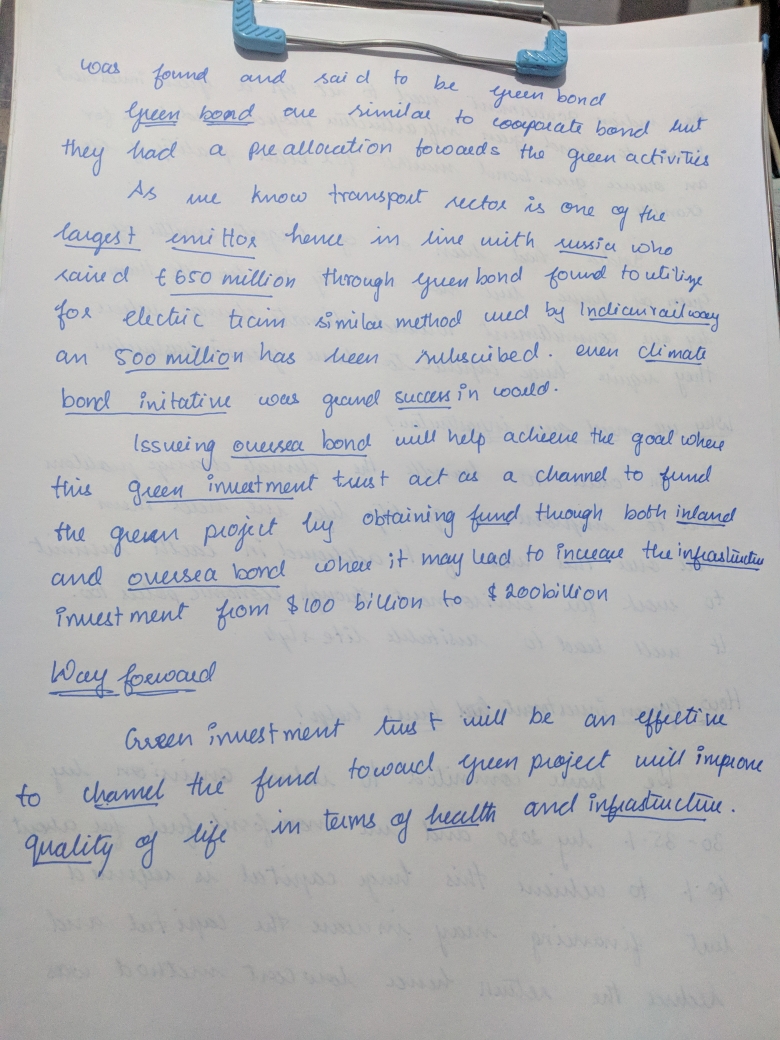 was found and said to be green bond
Green bond are similar to cooparate bond but
they had a preallocation towards the green activities
As we know transport sector is one of the
largest emittor hence in line with russia who
raised € 650 million through green bond found to utilize
for electric train similar method used by Indian railway
an 500 million has been subscribed. even climate
bond initative was grand success in world.
Issueing oversea bond will help achieve the goal where
this green investment trust act as a channel to fund
the green project by obtaining fund through both inland
and oversea bond where it may lead to increase the infrastructure
investment from $100 billion to $200 billion
Way forward
Green investment trust will be an effective
to channel the fund toward green project will improve
quality of life in terms of health and infrastructure.